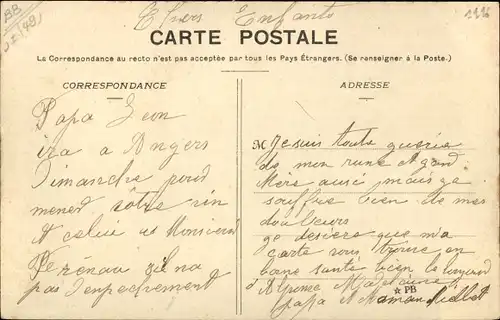 Chers Enfants
CARTE POSTALE
La Correspondance au recto n'est pas acceptée par tous les Pays Étrangers. (Se renseigner à la Poste.)
CORRESPONDANCE
Papa Leon
ira a Angers
Dimanche pour
mener vôtre vin
et celui de Monsieur
sil na
pas d'enpechement
ADRESSE
M Je suis toute guerie
de mon rume et grand
Mère ausi mais ge
souffre bien de mes
douleurs
ge desiere que m'a
carte vous trouve en
bone santé bien le bonjour
d'Alponse Madelaine
papa et Maman
★ PB